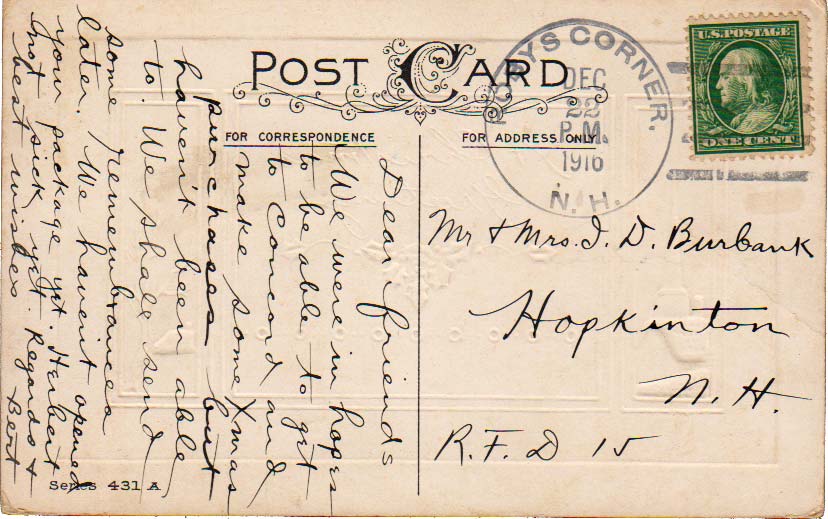 POST CARD
FOR CORRESPONDENCE
FOR ADDRESS ONLY
Dear friends
We were in hopes
to be able to get
to Concord and
make some Xmas
purchases but
haven't been able
to. We shall send
some remembrances
later. We haven't opened
your package yet. Herbert
not sick yet. Regards &
best wishes. Bert
Series 431 A
CORNER.
DEC
22
P.M.
1916
N. H.
U.S. POSTAGE
ONE CENT
Mr & Mrs. I. D. Burbank
Hopkinton
N. H.
R. F. D 15